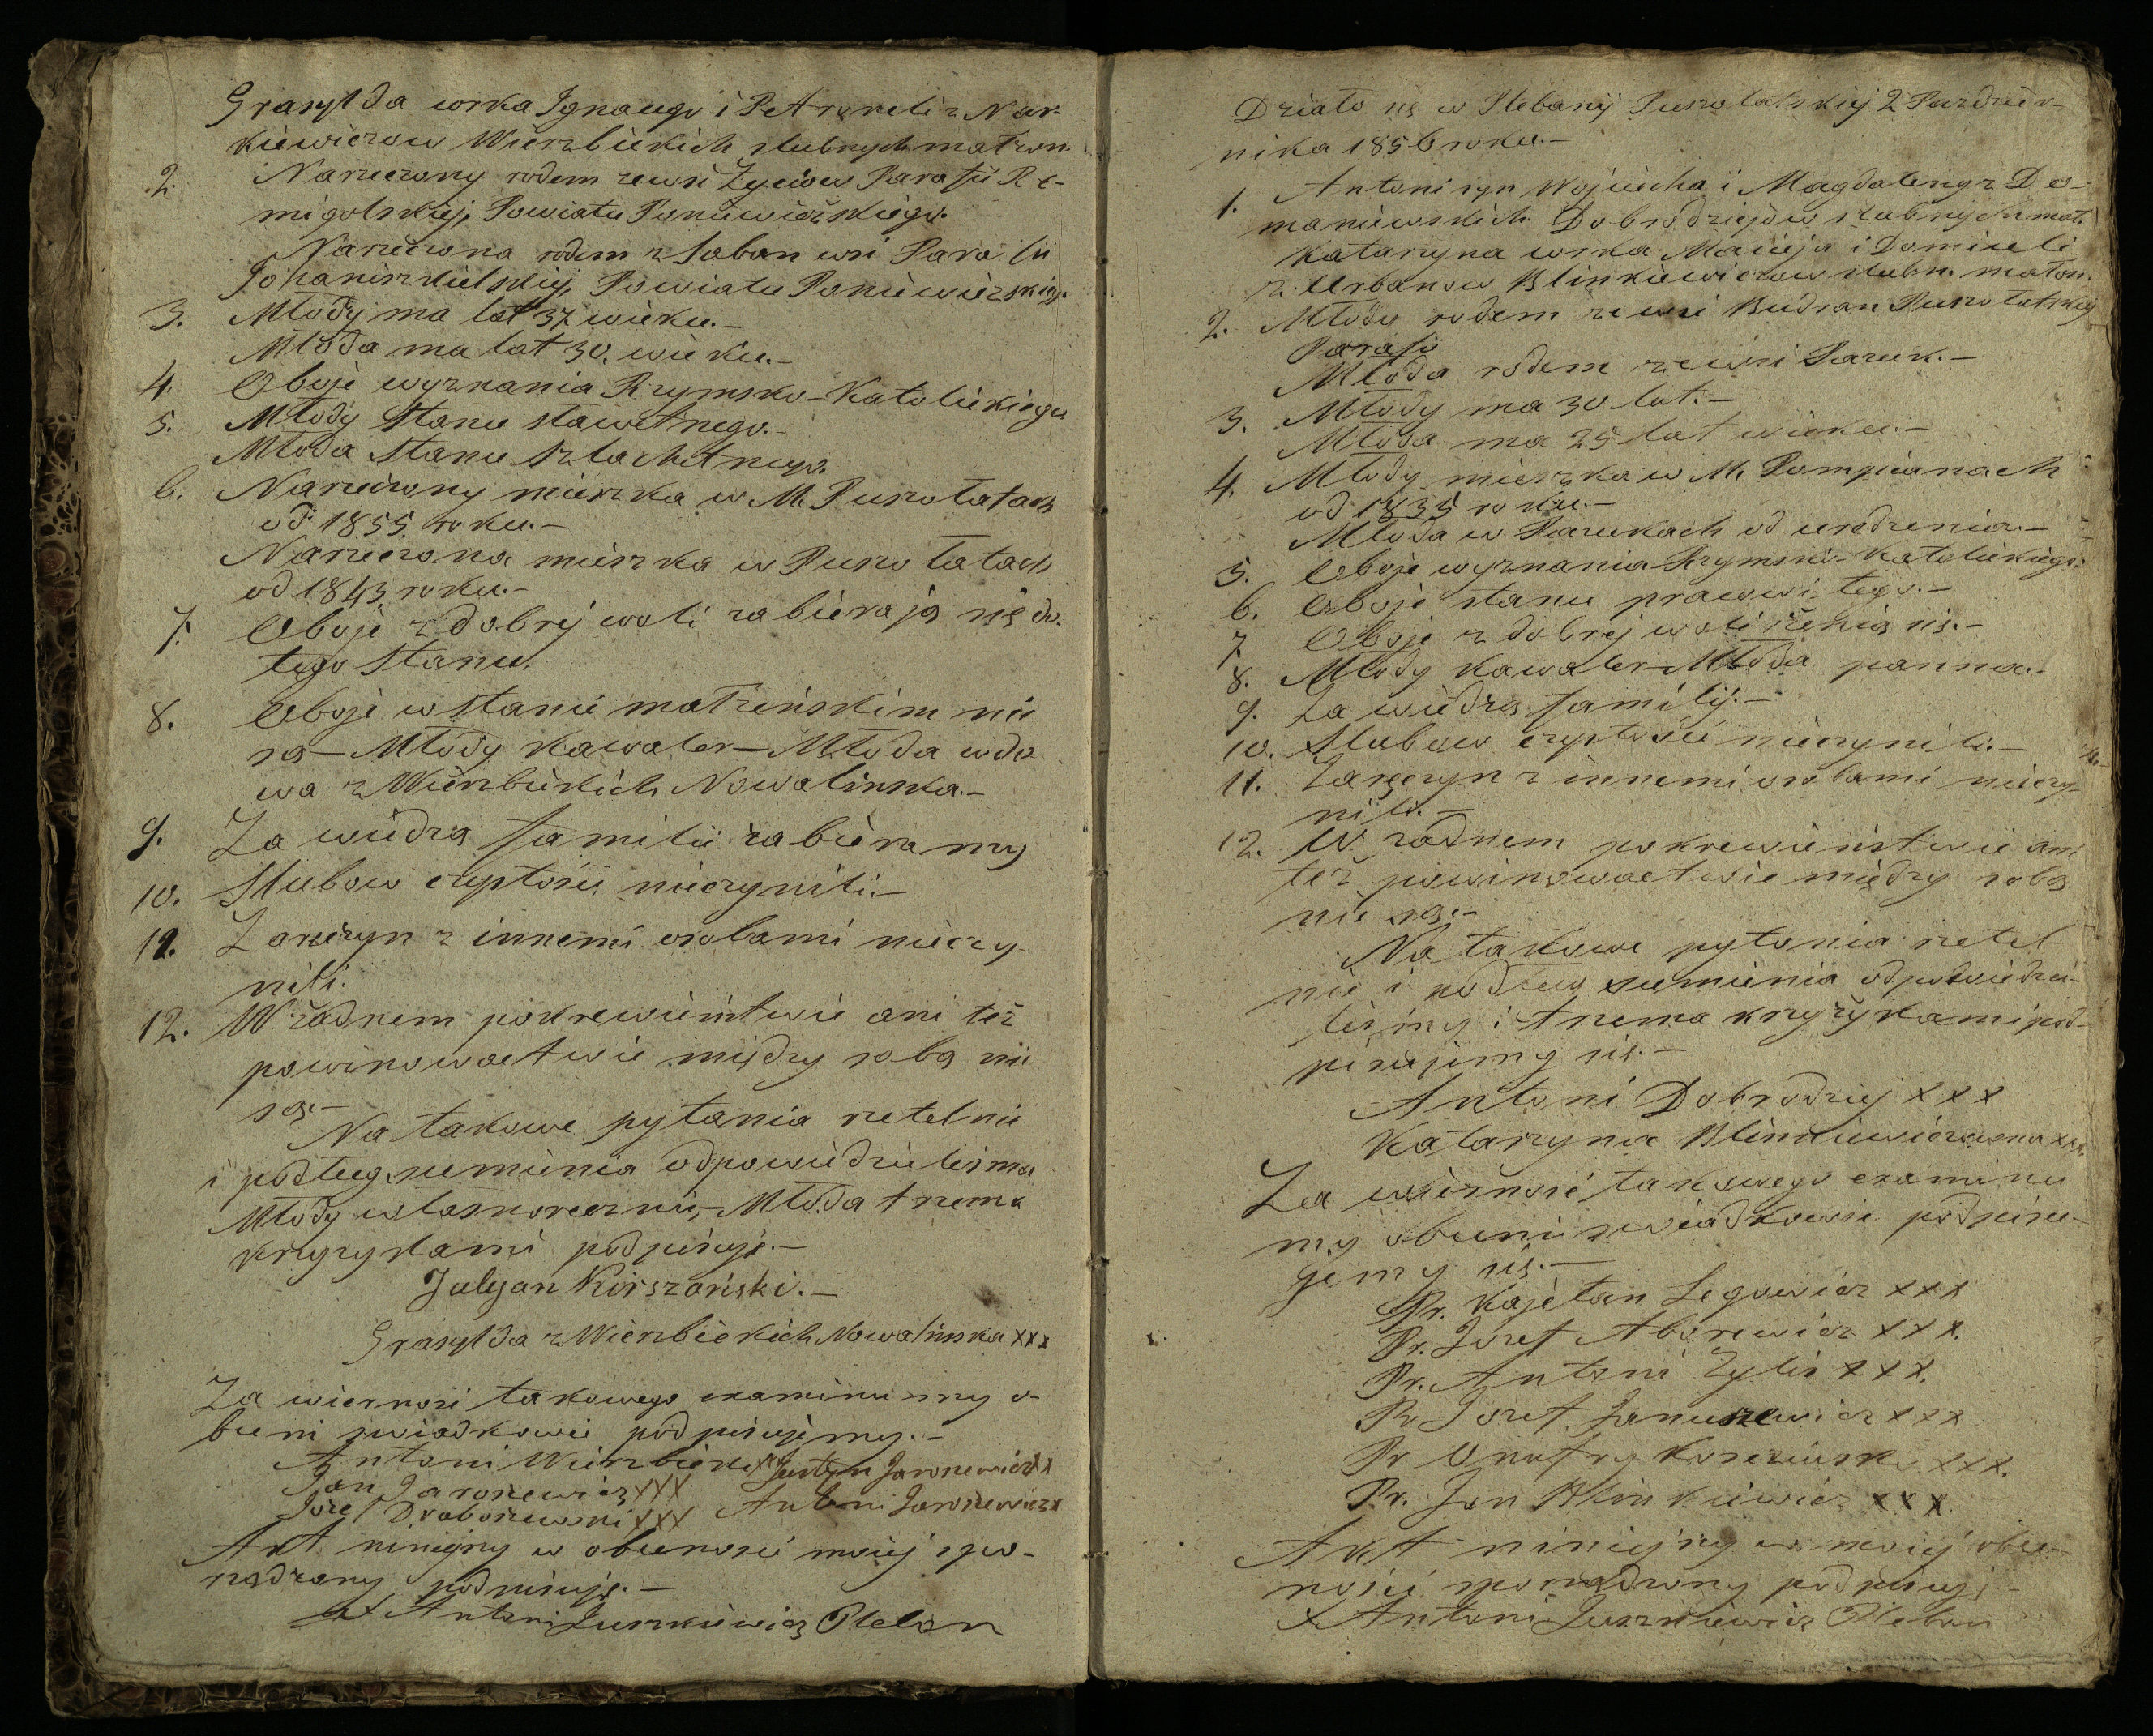 Grasylda corka Ignacego i Petroneli z Nar-
kiewiczow Wierzbickich slubnych małżon.
2. Narzeczony rodem zewsi Zyciow Parafii Re-
migolskiej, Powiatu Poniewieżskiego.
Narzeczona rodem z Łaban wsi Parafii
Johaniszkielskiej, Powiatu Poniewieżskieg.
3. Młody ma lat 37 wieku.-
Młoda ma lat 30. wieku.-
4. Oboje wyznania Rzymsko-Katolickiego
5. Młody Stanu sławetnego.-
Młoda Stanu szlachetnego.
6. Narzeczony mieszka w M. Puszołatach
od 1855. roku.-
Narzeczona mieszka w Puszołatach
od 1843 roku.-
7. Oboje z dobrej woli zabierają się do
tego Stanu.
8. Oboje w stanie małżeńskim nie
są - Młody Kawaler - Młoda wdo
wa z Wierzbickich Nowalinska.-
9. Za wiedzą familii zabieramy
10. Slubow czystości nieczynili.-
11. Zaręczyn z innemi osobami nieczy-
nili.
12. W żadnem pokrewieństwie ani też
powinowactwie między sobą nie
są.-
Na takowe pytania rzetelnie
i podług sumienia odpowiedzielisma
Młody własnoręcznie, Młoda trzema
krzyzykami podpisuje.-
Julyan Kirszański.-
Grasylda z Wierzbickich Nowalinska xxx
Za wiernosc takowego examinu my o-
becni swiadkowie podpisujemy.-
Antoni Wierzbicki xxx Justyn Jaroszewicz xx
Jan Jaroszewicz XXX
Jozef Draboszewski XXX Antoni Jaroszewicz x
Akt niniejszy w obecnosci mojej spo-
rządzony podpisuje.-
X Antoni Juszkiewicz Pleban
Działo się w Plebanij Puszołatskiej 2 Pazdzier-
nika 1856 roku.-
1. Antoni syn Wojciecha i Magdaleny z Do-
maniewskich Dobrodziejow slubnych małż.
Katarzyna corka Macieja i Domiceli
z Urbanow Blinkiewiczow slubn. małżon.
2. Młody rodem ze wsi Budzan Puszołatskiej
Parafii
Młoda rodem ze wsi Paruk.-
3. Młody ma 30 lat.-
Młoda ma 25 lat wieku.-
4. Młody mieszka w M. Pompianach
od 1835 roku.-
Młoda w Parukach od urodzenia.-
5. Oboje wyznania Rzymsko-Katolickiego.
6. Oboje stanu prawowitego.-
7. Oboje z dobrej woli żenią się.-
8. Młody Kawaler Młoda panna.-
9. Za wiedzą familij.-
10. Slubow czystości nieczynili.-
11. Zaręczyn z innemi osobami nieczy-
nili.-
12. W żadnem pokrewieństwie ani
też powinowactwie między sobą
nie są.-
Na takowe pytania rzetel-
nie i podług sumienia odpowiedzie-
lismy i trzema krzyżykami pod-
pisujemy się.-
Antoni Dobrodziej x x x
Katarzyna Blinkiewiczowna xxx.
Za wiernosć takowego examinu
my obecni swiadkowie podpisu-
jemy się.-
Pr. Kajetan Legowicz xxx
Pr. Jozef Aborewicz xxx.
Pr. Antoni Zylis xxx.
Pr Jozef Januszewicz xxx
Pr Onufry xxx.
Pr. Jan Blinkiewicz xxx.
Akt niniejszy w mojej obec-
ności sporządzony podpisuje-
X Antoni Juszkiewicz Pleban